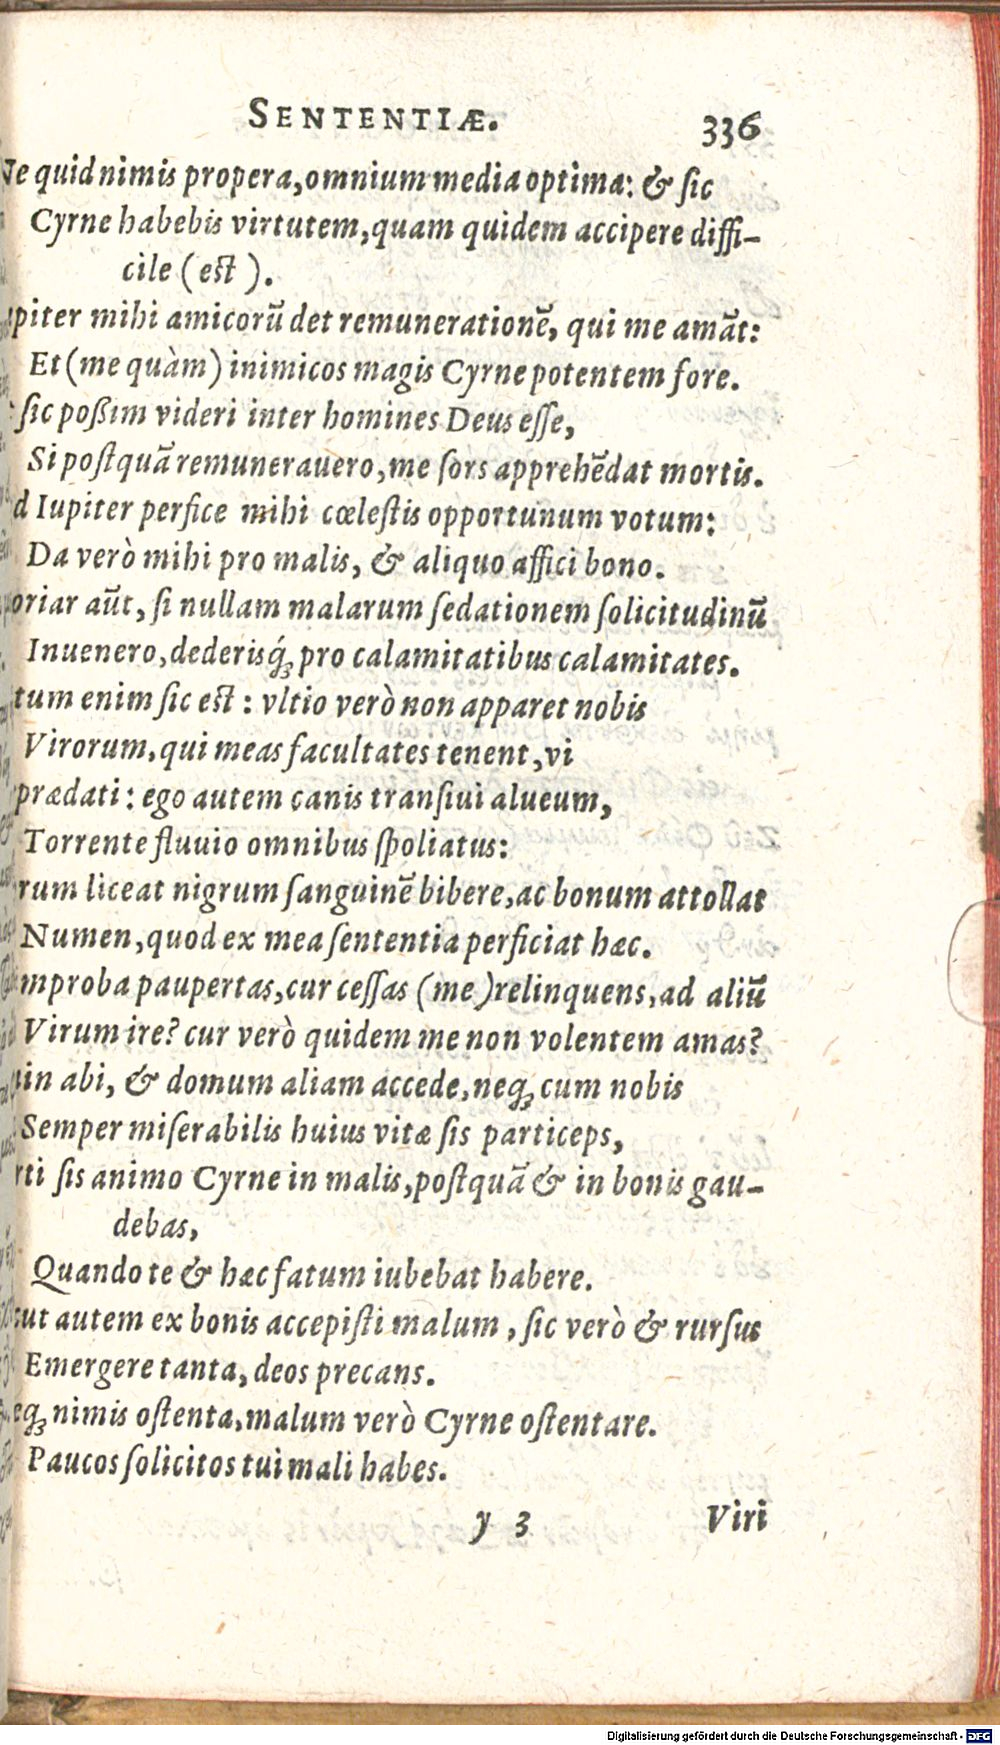 SENTENTIÆ. 336
Ne quid nimis propera, omnium media optima: & sic
Cyrne habebis virtutem, quam quidem accipere diffi-
cile (est ).
piter mihi amicorū det remunerationē, qui me amāt:
Et (me quàm) inimicos magis Cyrne potentem fore.
: sic poßim videri inter homines Deus esse,
Si postquā remunerauero, me sors apprehēdat mortis.
d Iupiter perfice mihi cœlestis opportunum votum:
Da verò mihi pro malis, & aliquo affici bono.
oriar aūt, si nullam malarum sedationem solicitudinū
Inuenero, dederisq́; pro calamitatibus calamitates.
tum enim sic est : vltio verò non apparet nobis
Virorum, qui meas facultates tenent, vi
prædati : ego autem canis transiui alueum,
Torrente fluuio omnibus spoliatus:
rum liceat nigrum sanguinē bibere, ac bonum attollat
Numen, quod ex mea sententia perficiat hæc.
mproba paupertas, cur cessas (me )relinquens, ad aliū
Virum ire? cur verò quidem me non volentem amas?
in abi, & domum aliam accede, neq; cum nobis
Semper miserabilis huius vitæ sis particeps,
rti sis animo Cyrne in malis, postquā & in bonis gau-
debas,
Quando te & hæc fatum iubebat habere.
ut autem ex bonis accepisti malum, sic verò & rursus
Emergere tanta, deos precans.
eq; nimis ostenta, malum verò Cyrne ostentare.
Paucos solicitos tui mali habes.
y 3 Viri
Digitalisierung gefördert durch die Deutsche Forschungsgemeinschaft - DFG